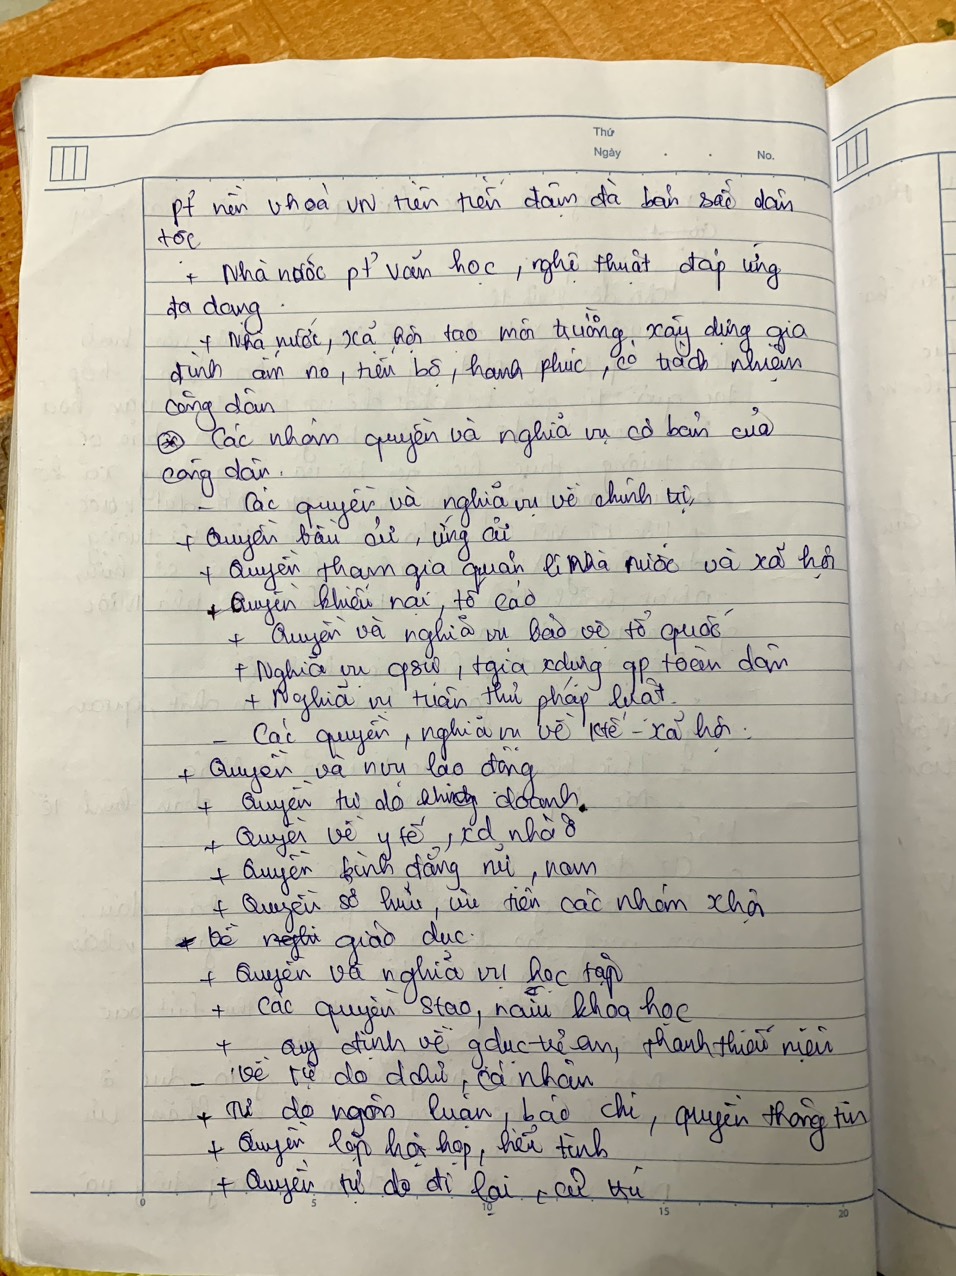 Thứ
Ngày . . No.
pt nền vhoá VN tiên tiến đậm đà bản sắc dân
tộc
+ Nhà nước pt văn học, nghệ thuật đáp ứng
đa dạng.
+ Nhà nước, xã hội tạo môi trường xây dựng gia
đình ấm no, tiến bộ, hạnh phúc, có trách nhiệm
công dân
* Các nhóm quyền và nghĩa vụ cơ bản của
công dân.
- Các quyền và nghĩa vụ về chính trị
+ Quyền bầu cử, ứng cử
+ Quyền tham gia quản lí nhà nước và xã hội
+ Quyền khiếu nại, tố cáo
+ Quyền và nghĩa vụ bảo vệ tổ quốc
+ Nghĩa vụ qsự, tgia xdựng qp toàn dân
+ Nghĩa vụ tuân thủ pháp luật.
- Các quyền, nghĩa vụ về ktế - xã hội.
+ Quyền và nvụ lao động
+ Quyền tự do kinh doanh.
+ Quyền về y tế, xd nhà ở
+ Quyền bình đẳng nữ, nam
+ Quyền sở hữu, ưu tiên các nhóm xhội
Về giáo dục.
+ Quyền và nghĩa vụ học tập
+ Các quyền stạo, ncứu khoa học
+ Quy định về gdục trẻ em, thanh thiếu niên
- Về tự do dchủ, cá nhân
+ Tự do ngôn luận, báo chí, quyền thông tin
+ Quyền lập hội họp, biểu tình
+ Quyền tự do đi lại, cư trú
0 5 10 15 20